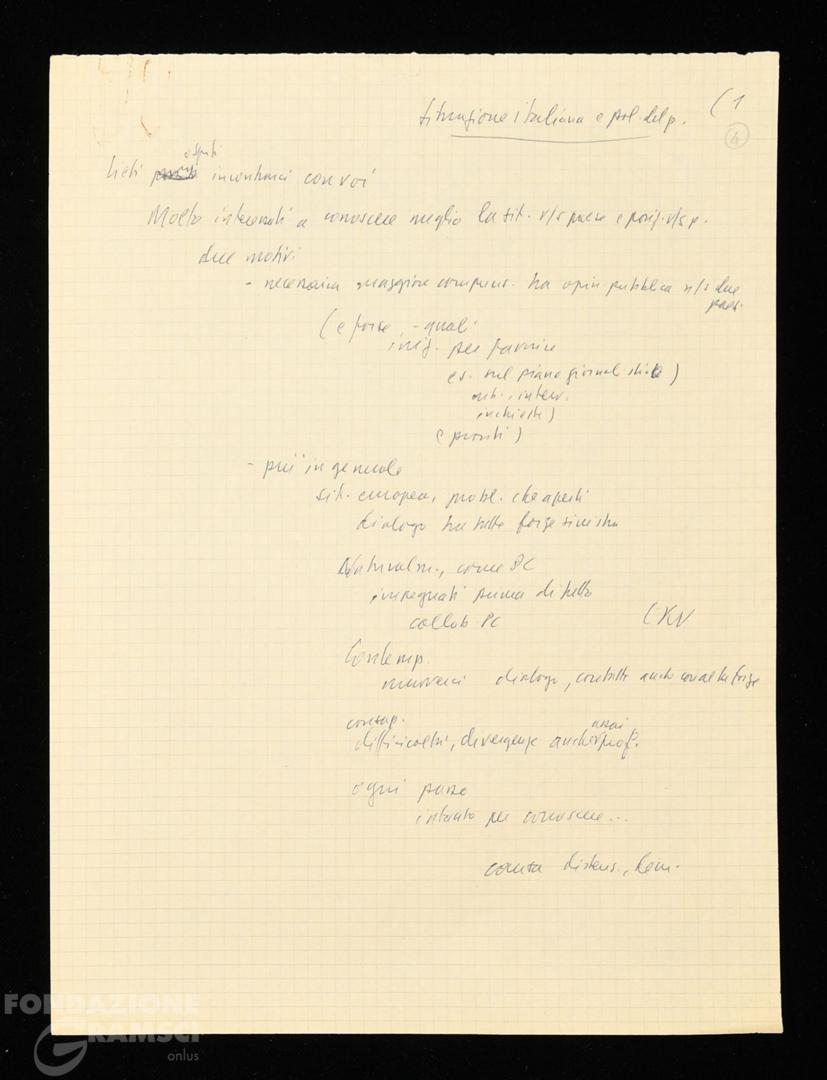 situazione italiana e pol. del p. (1
4
ospiti
Lieti incontrarci con voi
Molto interessati a conoscere meglio la sit. v/s paese e posiz. v/s p.
due motivi
- necessaria maggiore comprens. tra opin pubblica n/s due
paes.
(e forse, - quali
iniz. per favorire
es. sul piano giornalistico)
art., interv.
inchieste)
(pronti)
- più in generale
sit. europea, probl. che aperti
dialogo tra tutte forze sinistra
Naturalm., come PC
impegnati prima di tutto
collab PC
Contemp.
muoverci dialogo, contatti anche con altre forze
consap.
difficoltà, divergenze anche assai prof.
ogni passo
intanto per conoscere...
causa distens., dem.
FONDAZIONE
GRAMSCI
onlus